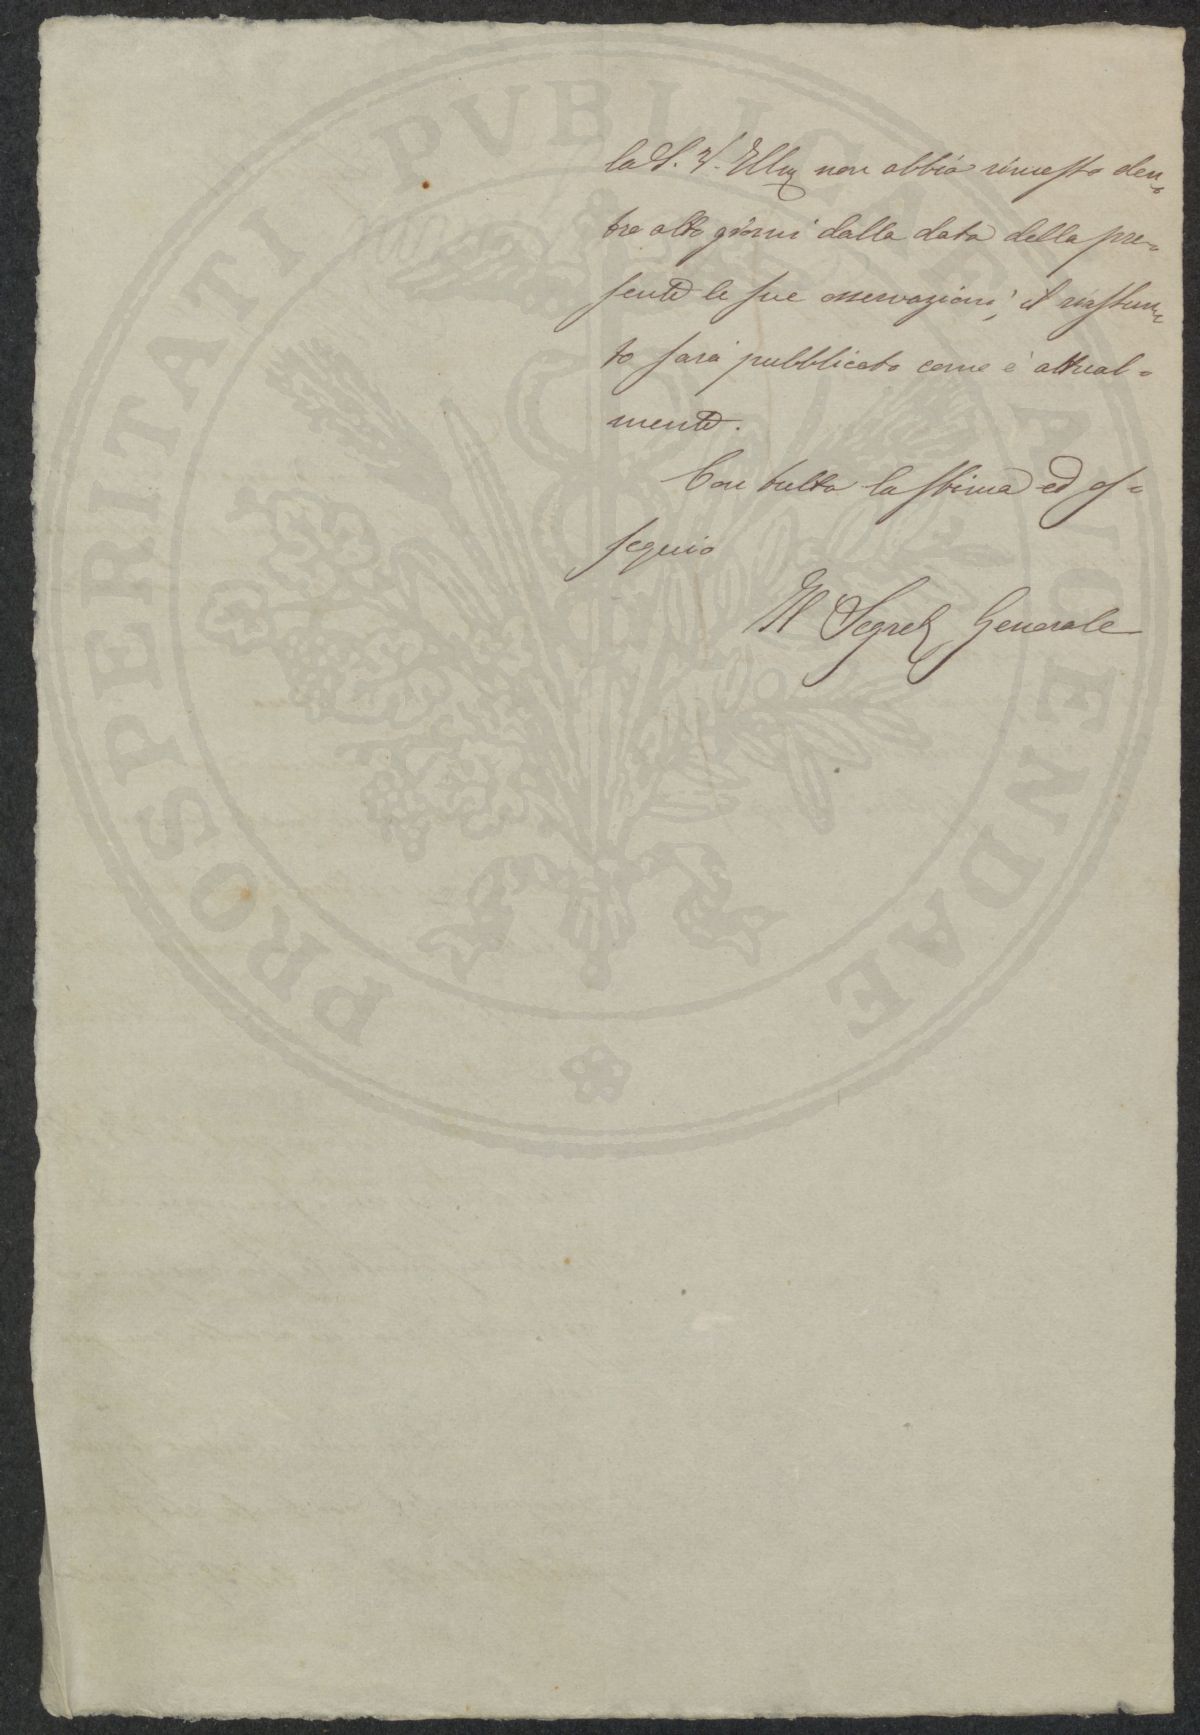 la S. V. Illma non abbia rimesso den=
tro otto giorni dalla data della pre=
sente le sue osservazioni, il riassun=
to sarà pubblicato come è attual=
mente.
Con tutta la stima ed os=
sequio
Il Segret Generale
PROSPERITATI PVBLICAE AVGENDAE